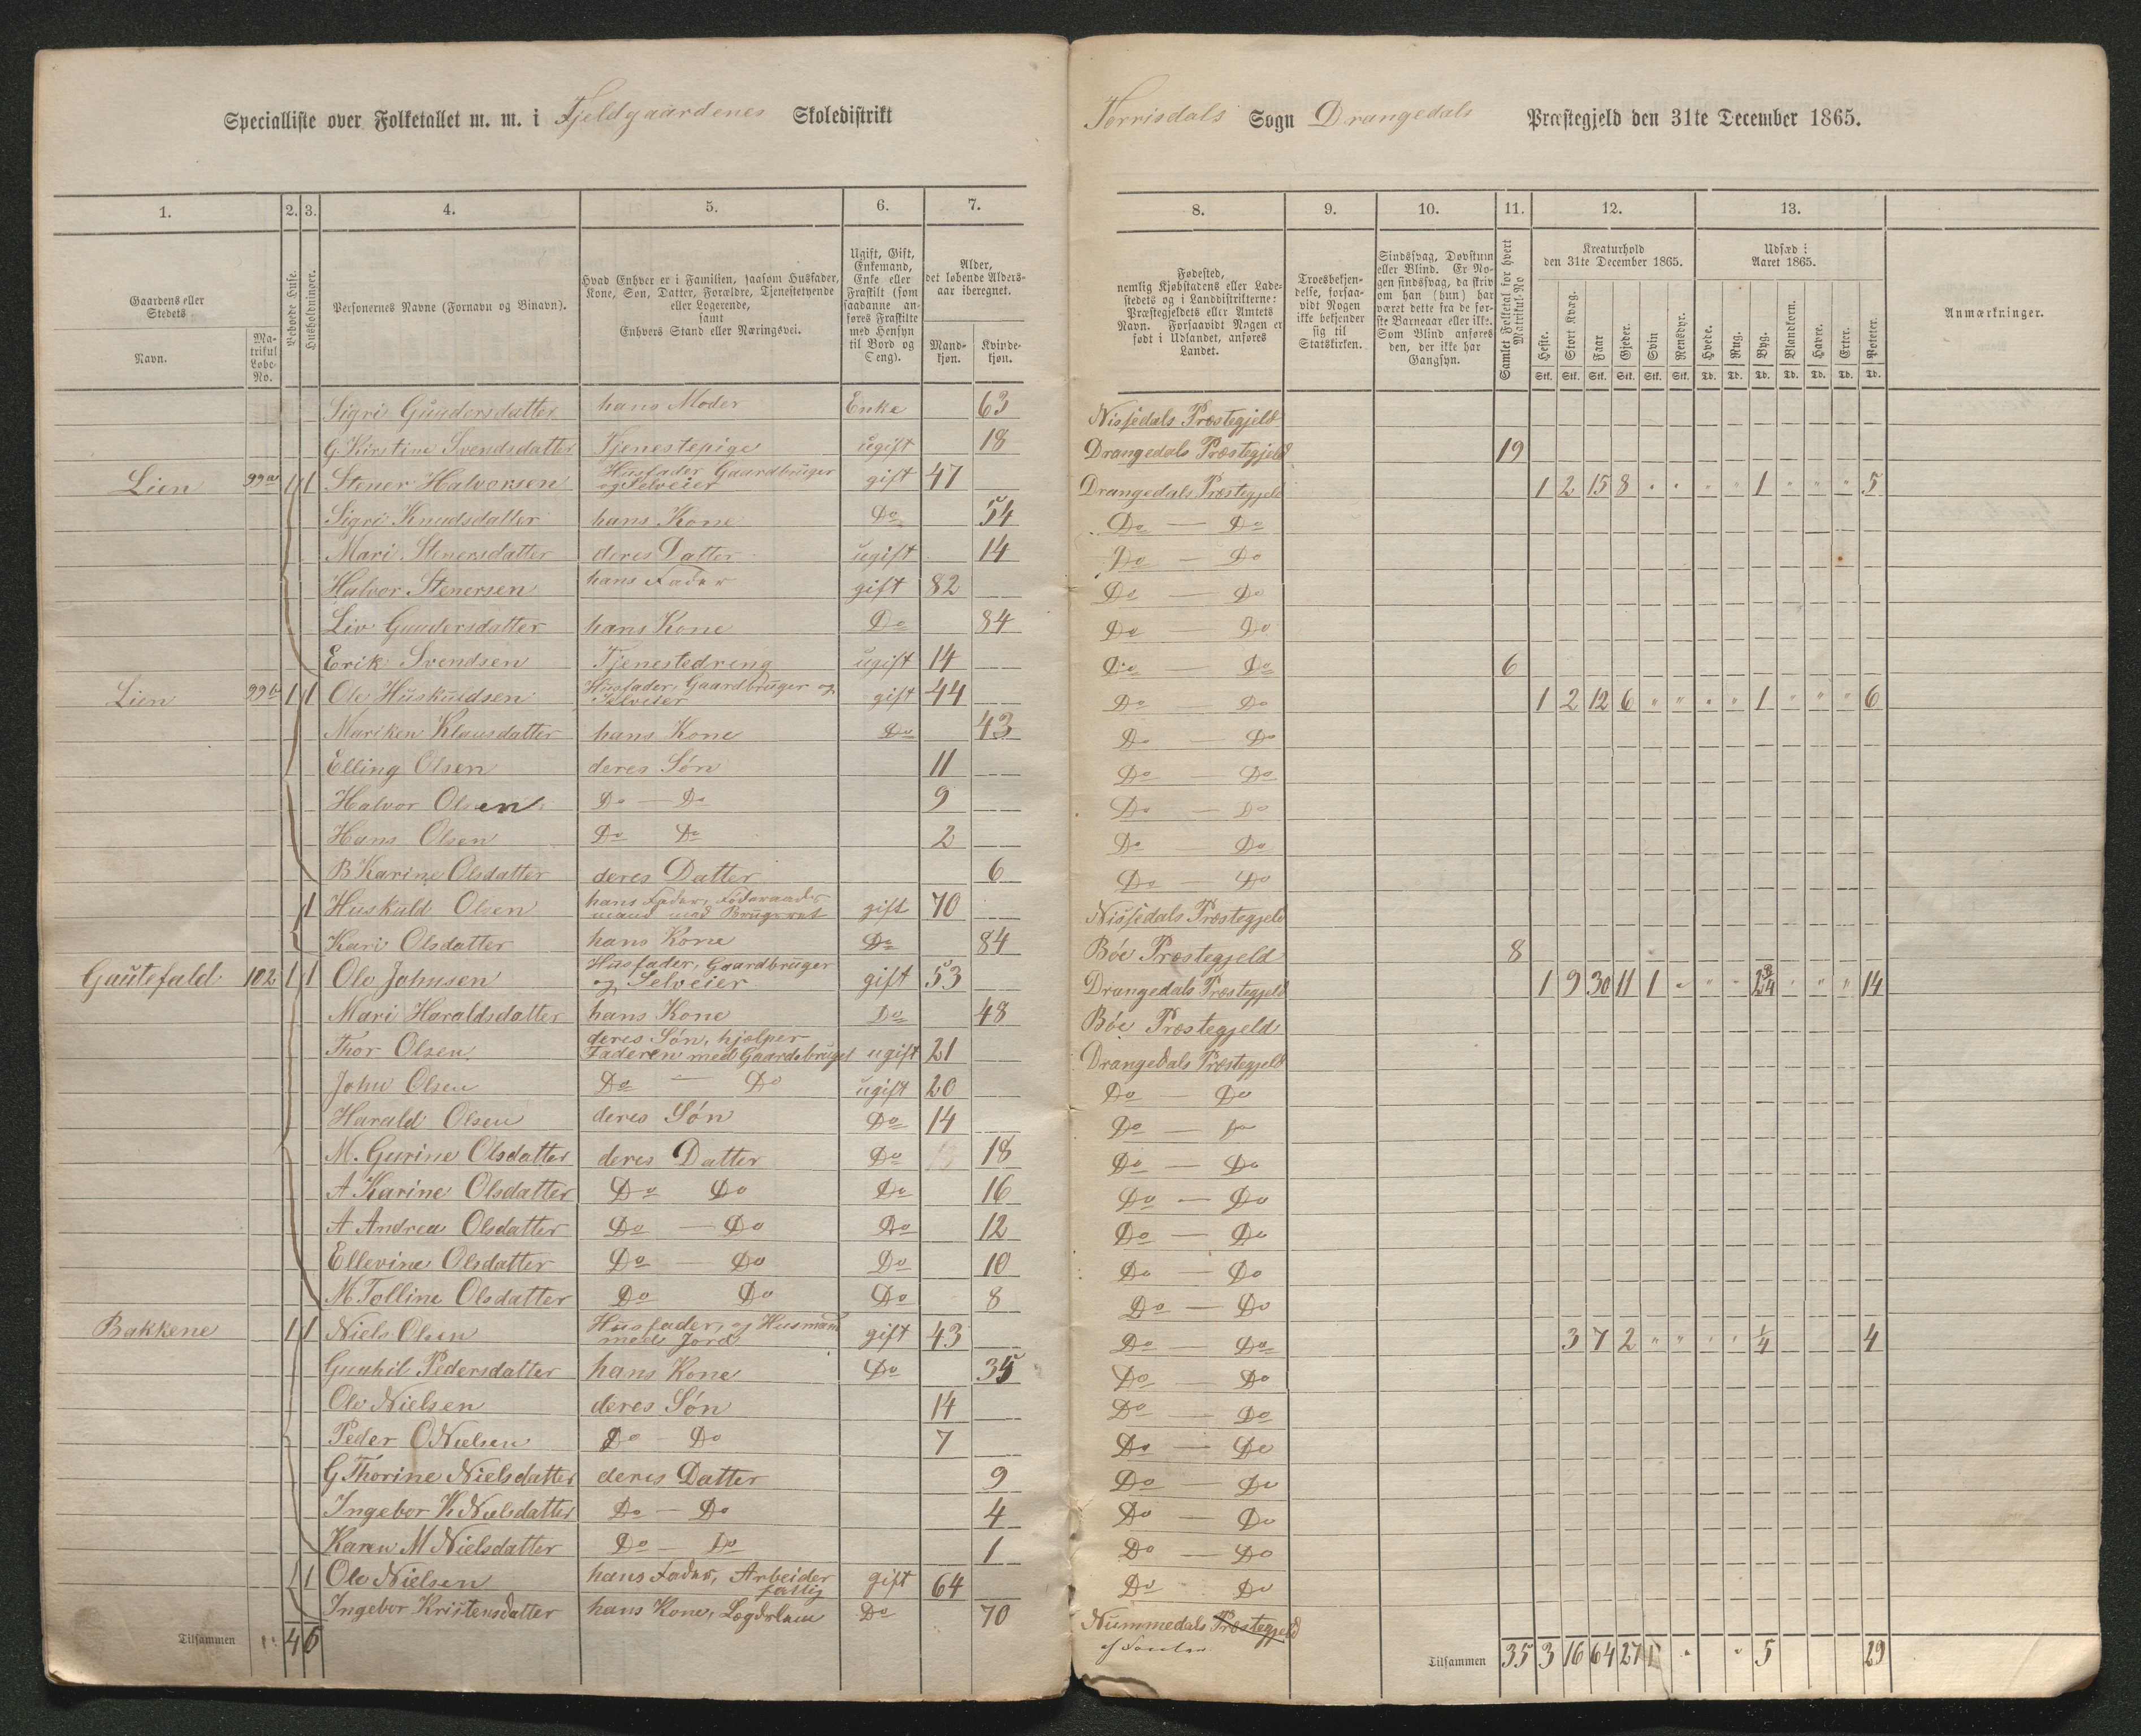 Specialliste over Folketallet m. m. i Fjeldgaardenes Skoledistrikt
Torrisdals Sogn Drangedals Præstegjeld den 31te December 1865.
1. 2. 3. 4. 5. 6. 7. 8. 9. 10. 11. 12. 13.
Gaardens eller Stedets
Navn.
Matrikul Løbe-No.
Beboede Huse.
Husholdninger.
Personernes Navne (Fornavn og Binavn).
Hvad Enhver er i Familien, saasom Husfader, Kone, Søn, Datter, Forældre, Tjenestetyende eller Logerende, samt Enhvers Stand eller Næringsvei.
Ugift, Gift, Enkemand, Enke eller Fraskilt (som saadanne anføres Fraskilte med Hensyn til Bord og Seng).
Alder, det løbende Alders-aar iberegnet.
Mandkjøn.
Kvindekjøn.
Fødested, nemlig Kjøbstadens eller Ladestedets og i Landdistrikterne: Præstegjeldets eller Amtets Navn. Forsaavidt Nogen er født i Udlandet, anføres Landet.
Troesbekjendelse, forsaavidt Nogen ikke bekjender sig til Statskirken.
Sindssvag, Døvstum eller Blind. Er Nogen sindssvag, da skriv om han (hun) har været dette fra de første Barneaar eller ikke. Som Blind anføres den, der ikke har Gangsyn.
Samlet Folketal for hvert Matrikul-No
Kreaturhold den 31te December 1865.
Udsæd i Aaret 1865.
Anmærkninger.
Heste. Stort Kvæg. Faar Gjeder. Svin Rensdyr. Hvede. Rug. Byg. Blandkorn. Havre. Erter. Poteter.
Stk. Stk. Stk. Stk. Stk. Stk. Td. Td. Td. Td. Td. Td. Td.
Sigri Gundersdatter hans Moder Enke 63 Nissedals Præstegjeld
G Kirstine Svendsdatter Tjenestepige ugift 18 Drangedals Præstegjeld 19
Lien 99a 1 1 Stener Halvorsen Husfader Gaardbruger og Selveier gift 47 Drangedals Præstegjeld 1 2 15 8 " " " " 1 " " " 5
Sigri Knudsdatter hans Kone Do 54 Do — Do
Mari Stenersdatter deres Datter ugift 14 Do — Do
Halvor Stenersen hans Fader gift 82 Do — Do
Liv Gundersdatter hans Kone Do 84 Do — Do
Erik Svendsen Tjenestedreng ugift 14 Do — Do 6
Lien 99b 1 1 Ole Huskuldsen Husfader, Gaardbruger og Selveier gift 44 Do — Do 1 2 12 6 " " " " 1 " " " 6
Mariken Klausdatter hans Kone Do 43 Do — Do
Elling Olsen deres Søn 11 Do — Do
Halvor Olsen Do — Do 9 Do — Do
Hans Olsen Do Do 2 Do — Do
B Karine Olsdatter deres Datter 6 Do — Do
1 Huskuld Olsen hans Fader, Føderaads mand med Brugsret gift 70 Nissedals Præstegjeld
Kari Olsdatter hans Kone Do 84 Bøe Præstegjeld 8
Gautefald 102 1 1 Ole Johnsen Husfader, Gaardbruger og Selveier gift 53 Drangedals Præstegjeld 1 9 30 11 1 " " " 2 3/4 " " " 14
Mari Haraldsdatter hans Kone Do 48 Bøe Præstegjeld
Thor Olsen deres Søn, hjælper Faderen med Gaardsbruget ugift 21 Drangedals Præstegjeld
John Olsen Do — Do ugift 20 Do — Do
Harald Olsen deres Søn Do 14 Do — Do
M. Gurine Olsdatter deres Datter Do 18 Do — Do
A Karine Olsdatter Do Do Do 16 Do — Do
A Andrea Olsdatter Do — Do Do 12 Do — Do
Ellevine Olsdatter Do — Do Do 10 Do — Do
M Tolline Olsdatter Do Do Do 8 Do — Do
Bakkene 1 1 Niels Olsen Husfader, og Husmand med Jord gift 43 Do — Do 3 7 2 " " " " 1/4 4
Gunhil Pedersdatter hans Kone Do 35 Do — Do
Ole Nielsen deres Søn 14 Do — Do
Peder O Nielsen Do — Do 7 Do — Do
G Thorine Nielsdatter deres Datter 9 Do — Do
Ingebor K Nielsdatter Do — Do 4 Do — Do
Karen M Nielsdatter Do — Do 1 Do — Do
1 Ole Nielsen hans Fader, Arbeider fattig gift 64 Do Do
Ingebor Kristensdatter hans Kone, Lægdslem Do 70 Nummedals Præstegjeld
Tilsammen 4 6 Tilsammen 35 3 16 64 27 1 " " 5 29